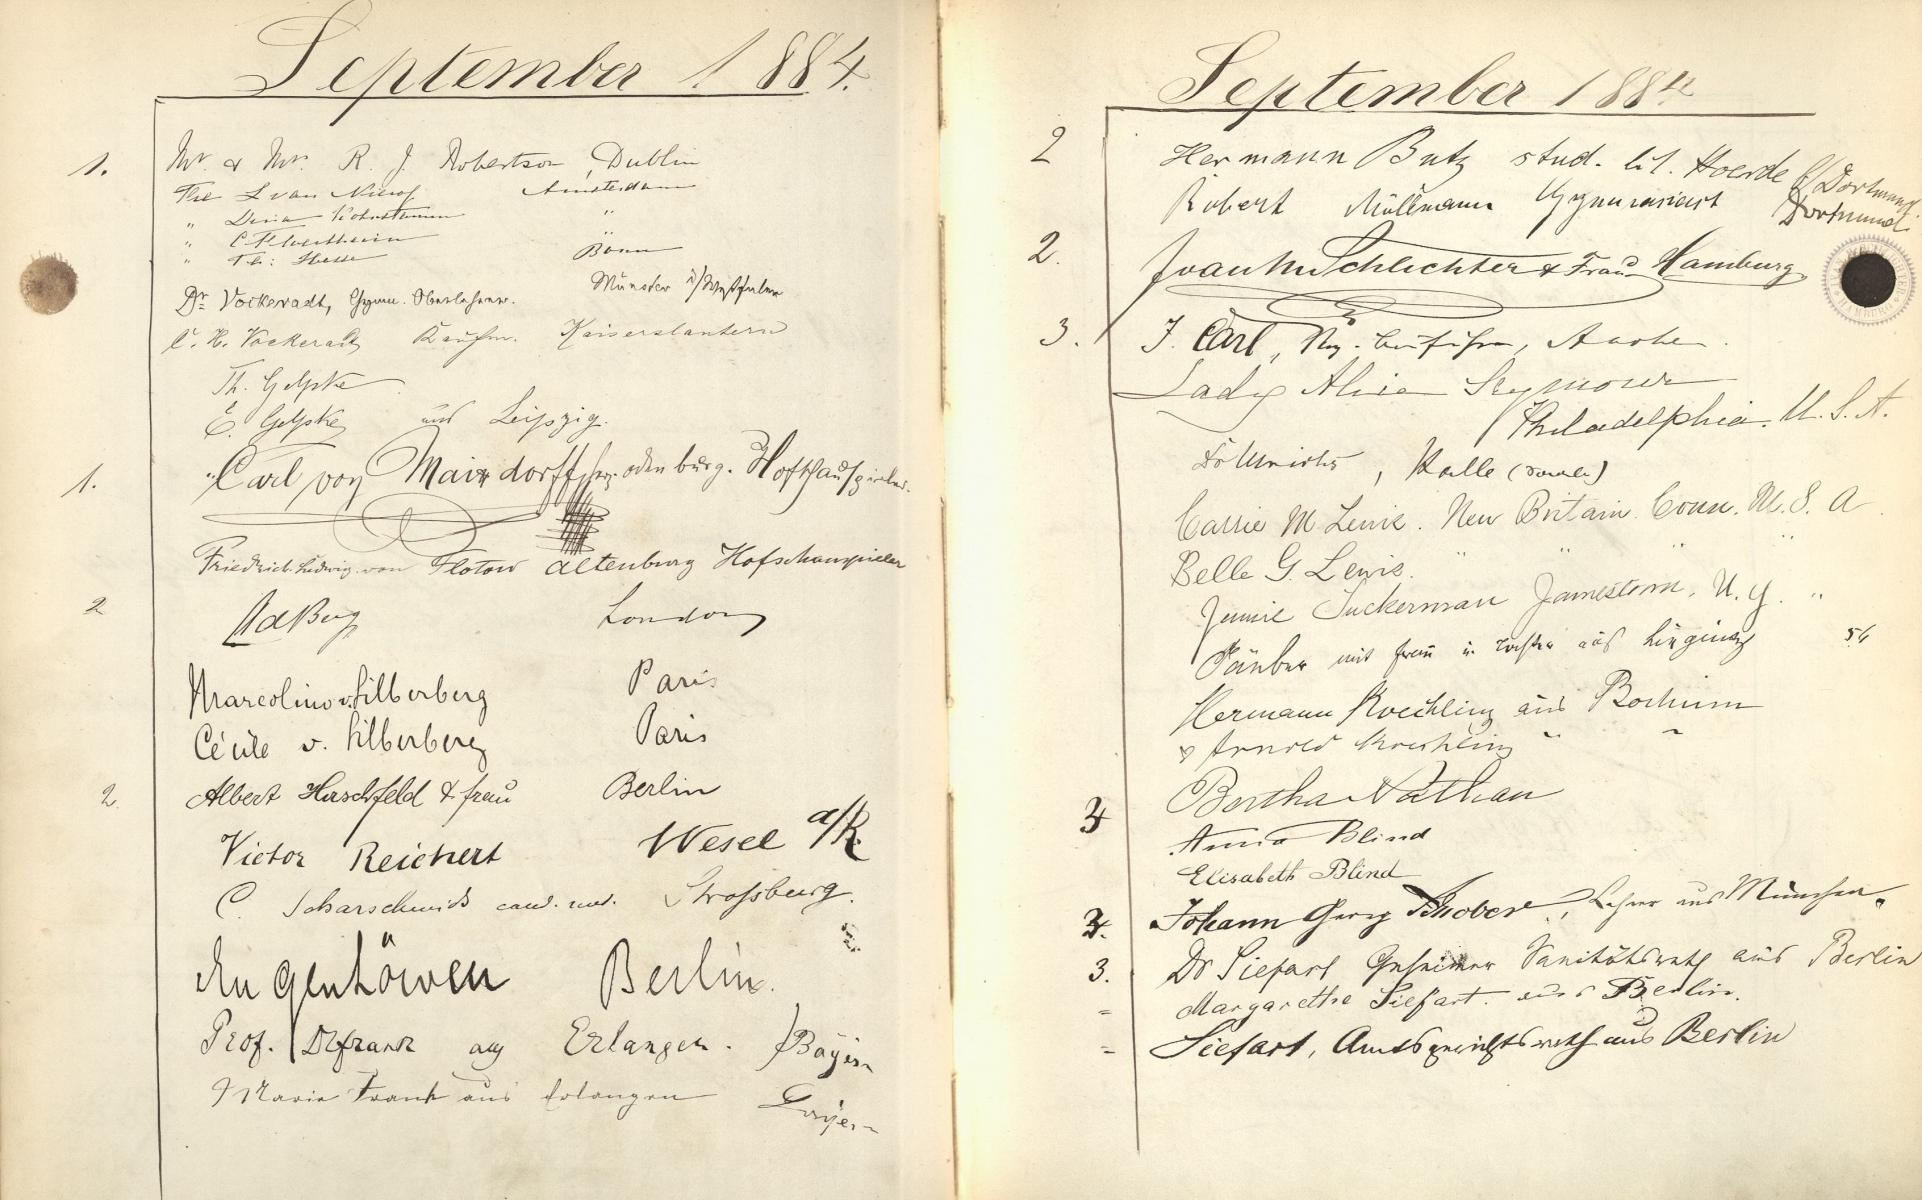 September 1884.
1. Mr & Mrs R. J. Robertson, Dublin
Amsterdam
"
" "
" Bonn
Dr Vockeradt, Gymn. Oberlehrer. Münster i/Westfalen
C. H. Vockeradt Kaufm. Kaiserslautern
Th. Gelpke
E. Gelpke aus Leipzig.
1. Carl von odenburg. Hofschauspieler.
Friedrich Ludwig von Flotow Altenburg Hofschauspieler
2 Ad Berg London
Marcolino v. Silberberg Paris
Cécile v. Silberberg Paris
2. Albert Hirschfeld & frau Berlin
Victor Reichert Wesel a/R.
C. Scharschmidt cand. med. Strassburg.
Berlin.
Prof. Dr Frank aus Erlangen. Bayern
Marie Frank aus Erlangen Bayern
September 1884
2 Hermann Butz stud. lit. Hoerde b/Dortmund.
Robert Müllmann Gymnasiast Dortmund
2. Schlichter & Frau Hamburg
3. J. Carl, Aachen.
Lady Alice Seymour
Philadelphia. U. S. A.
, Halle (Saale)
Carrie M Lewis. New Britain Conn. U. S. A.
Belle G. Lewis. " " " "
Jennie Tuckerman Jamestown, N. Y. "
mit Frau u. Tochter aus
Hermann Koechling aus Bochum
& Arnold Koechling " "
3 Bertha Nathan
Anna Blind
Elisabeth Blind
3. Johann Georg Lehrer aus München.
3. Dr Siefart Geheimer Sanitätsrath aus Berlin
= Margarethe Siefart. aus Berlin.
= Siefart, Amtsgerichtsrath aus Berlin